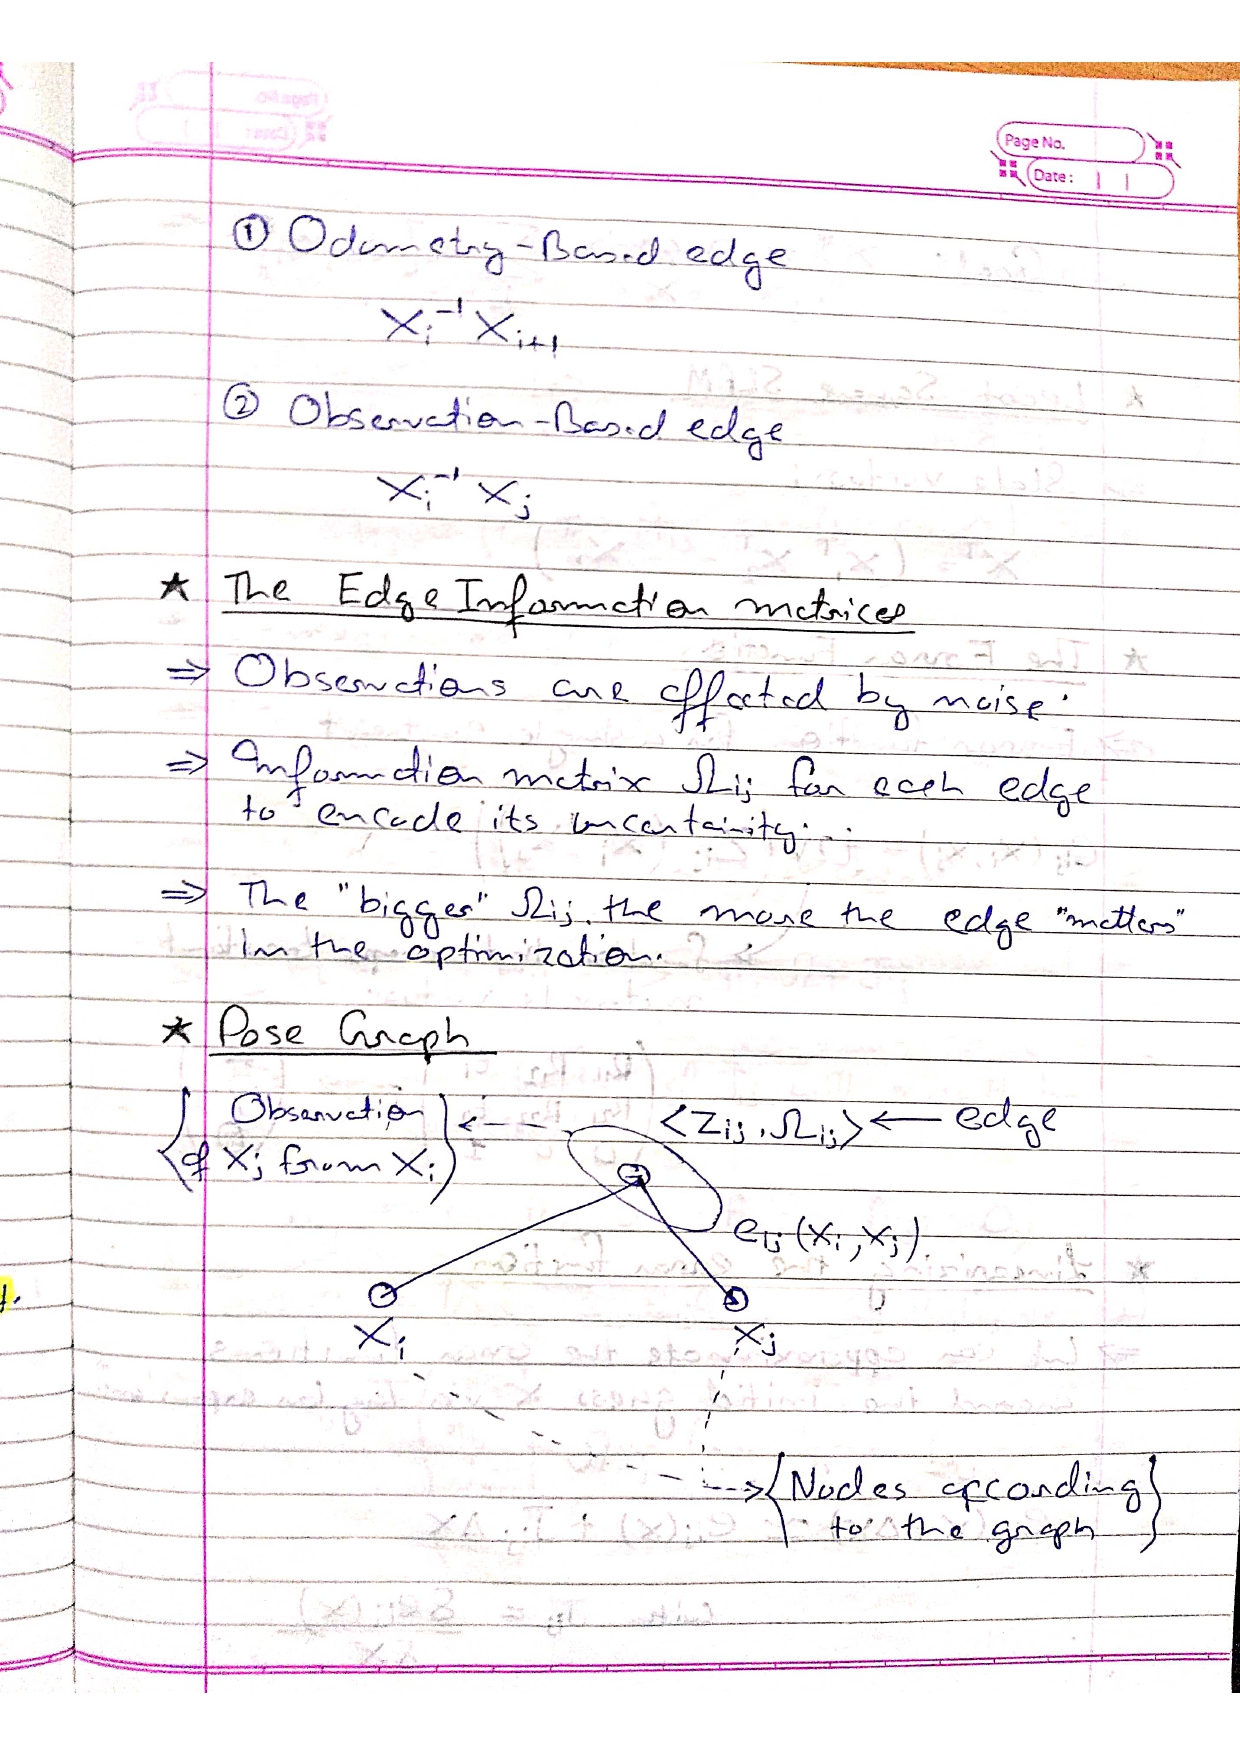 Page No.
Date:
① Odometry-Based edge
Xᵢ⁻¹ Xᵢ₊₁
② Observation-Based edge
Xᵢ⁻¹ Xⱼ
★ The Edge Information matrices
⇒ Observations are affected by noise.
⇒ Information matrix Ωij for each edge
to encode its uncertainity...
⇒ The "bigger" Ωij, the more the edge "matters"
in the optimization.
★ Pose Graph
{ Observation } ⇠ <Zij, Ωij> ← edge
{ of Xj from Xi }
eij (Xi, Xj)
Xi Xj
{ Nodes according }
to the graph